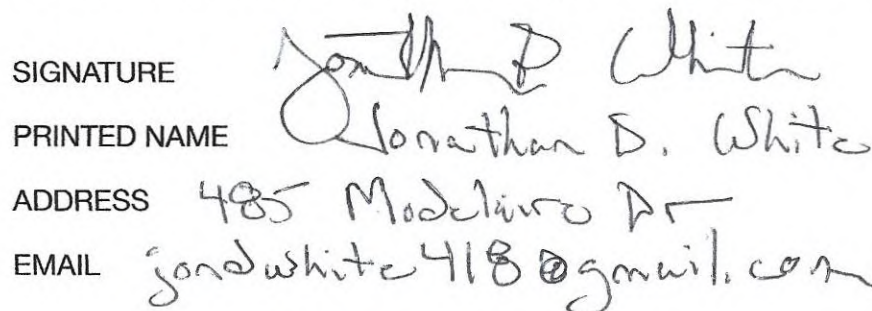 SIGNATURE Jonathan D White
PRINTED NAME Jonathan D. White
ADDRESS 485 Dr
EMAIL jondwhite418@gmail.com